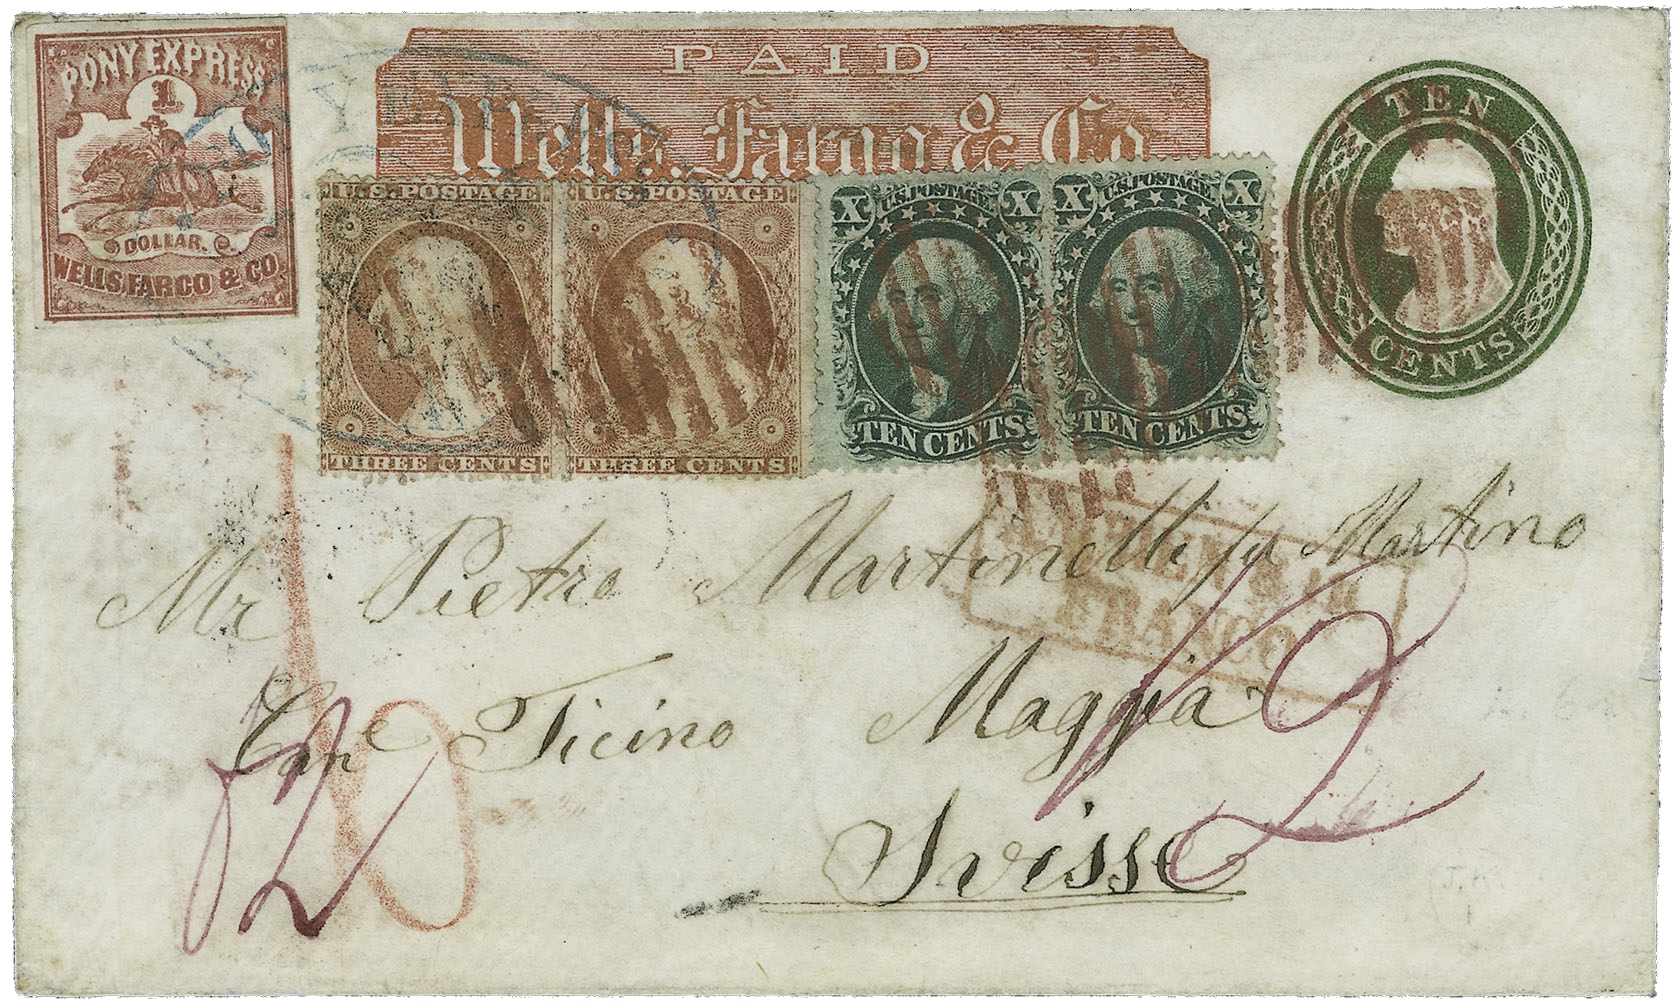 PONY EXPRESS
1
DOLLAR.
WELLS, FARGO & CO.
PAID
Wells, Fargo & Co
U.S. POSTAGE
THREE CENTS
U.S. POSTAGE
THREE CENTS
X U.S. POSTAGE X
TEN CENTS
X U.S. POSTAGE X
TEN CENTS
TEN
CENTS
FRANCO
Mr Pietro Martinelli fu Martino
Cane Ticino Maggia
Svisse
12
10
12